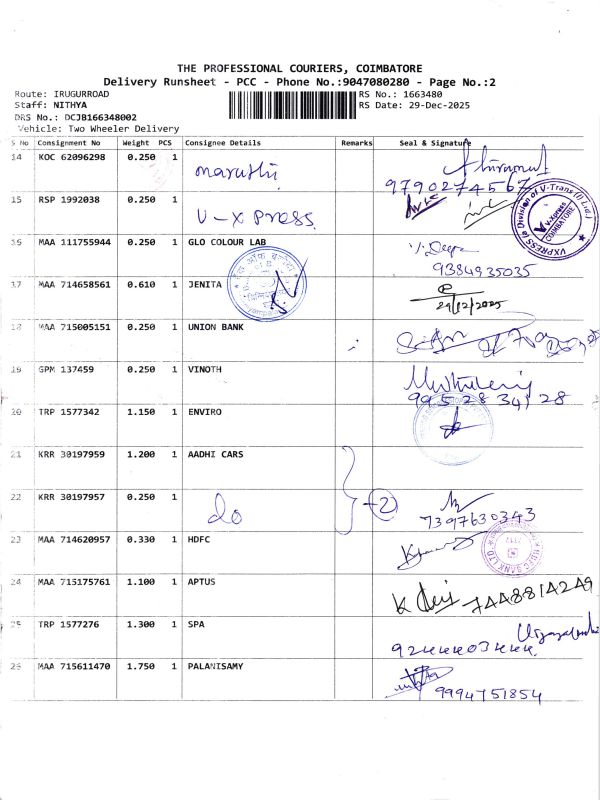 THE PROFESSIONAL COURIERS, COIMBATORE
Delivery Runsheet - PCC - Phone No.:9047080280 - Page No.:2
Route: IRUGURROAD RS No.: 1663480
Staff: NITHYA RS Date: 29-Dec-2025
DRS No.: DCJB166348002
Vehicle: Two Wheeler Delivery
S No Consignment No Weight PCS Consignee Details Remarks Seal & Signature
14 KOC 62096298 0.250 1 maruthi
9790274567
15 RSP 1992038 0.250 1 V-X press
VXPRESS (a Division of V-Trans (I) Ltd.) V-Xpress COIMBATORE
16 MAA 111755944 0.250 1 GLO COLOUR LAB
9384935035
17 MAA 714658561 0.610 1 JENITA
29/12/2025
18 MAA 715005151 0.250 1 UNION BANK
19 GPM 137459 0.250 1 VINOTH
9952834128
20 TRP 1577342 1.150 1 ENVIRO
21 KRR 30197959 1.200 1 AADHI CARS
22 KRR 30197957 0.250 1 do -2
7397630343
23 MAA 714620957 0.330 1 HDFC
HDFC BANK LTD
24 MAA 715175761 1.100 1 APTUS
7448814249
25 TRP 1577276 1.300 1 SPA
26 MAA 715611470 1.750 1 PALANISAMY
9994751854